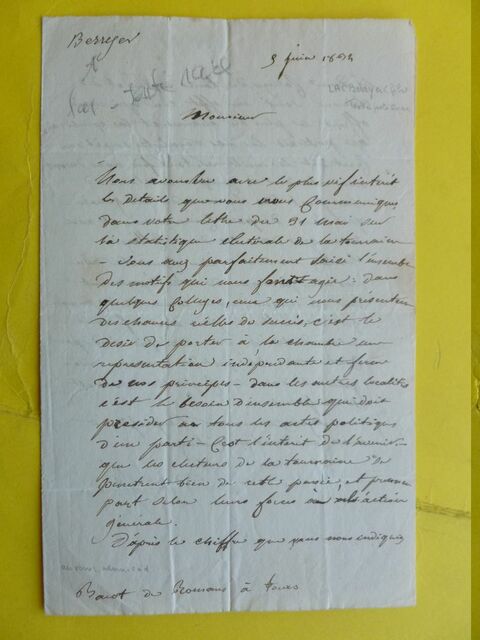 Berryer
5 juin 18
Monsieur
Nous avons lu avec le plus vif intérêt
les details que vous nous communiquez
dans votre lettre du 31 mai sur
la statistique électorale de la touraine
- Vous avez parfaitement saisi l'ensemble
des motifs qui nous font agir : dans
quelques colleges, ceux qui nous présentent
des chances réelles de succès, c'est le
desir de porter à la chambre une
representation indépendante et ferme
de nos principes - dans les autres localités
c'est le besoin d'ensemble qui doit
presider à tous les actes politiques
d'un parti - C'est l'intérêt de l'avenir.
que les electeurs de la touraine se
penetrent bien de cette pensée, et prennent
part selon leurs forces à l'action
générale.
D'après le chiffre que vous nous indiquez
de Romans à Tours